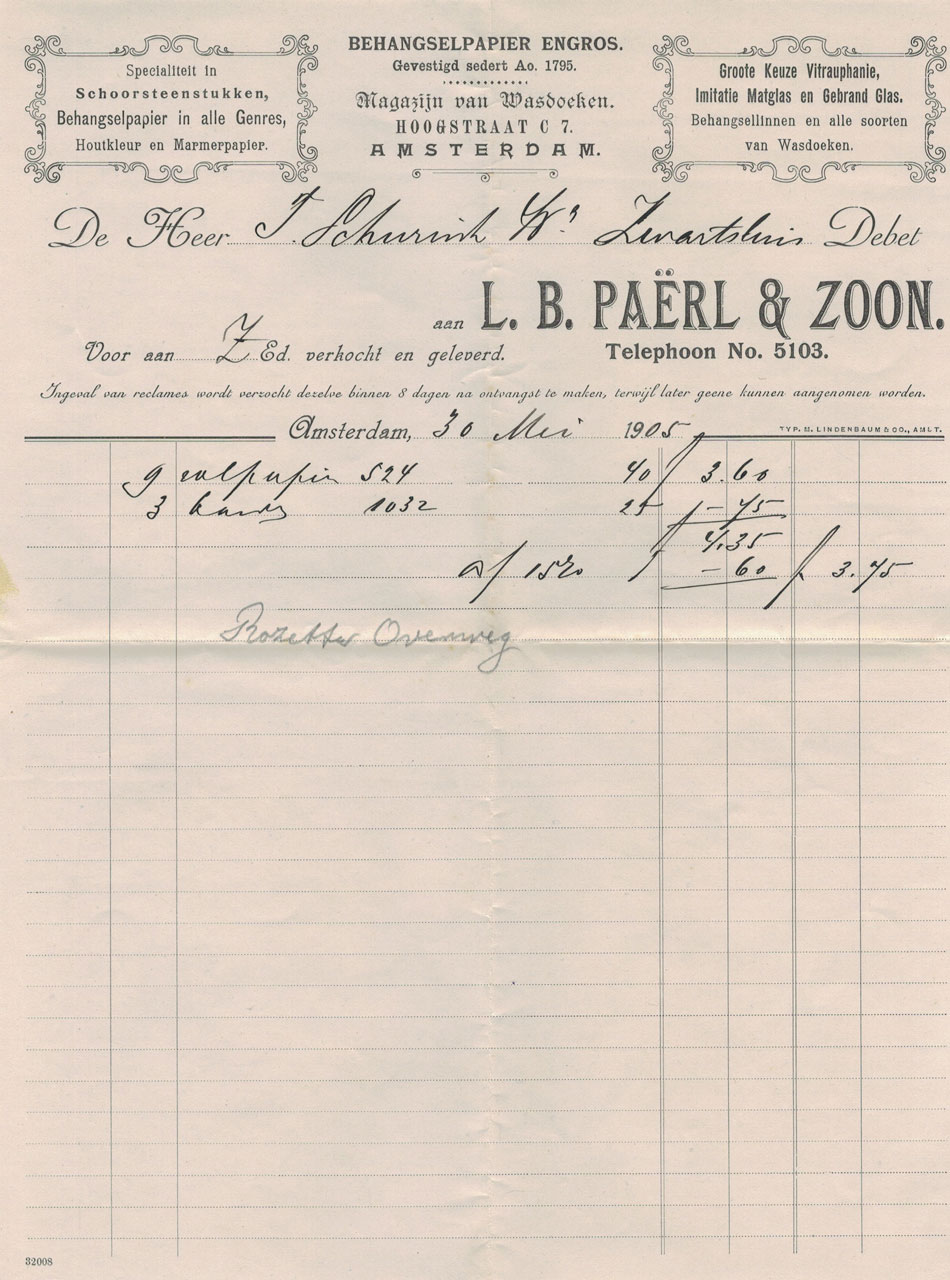 Specialiteit in
Schoorsteenstukken,
Behangselpapier in alle Genres,
Houtkleur en Marmerpapier.
BEHANGSELPAPIER ENGROS.
Gevestigd sedert Ao. 1795.
Magazijn van Wasdoeken.
HOOGSTRAAT C 7.
AMSTERDAM.
Groote Keuze Vitrauphanie,
Imitatie Matglas en Gebrand Glas.
Behangsellinnen en alle soorten
van Wasdoeken.
De Heer T. Schurink Wz Zwartsluis Debet
aan L. B. PAËRL & ZOON.
Voor aan Z Ed. verkocht en geleverd.
Telephoon No. 5103.
Ingeval van reclames wordt verzocht dezelve binnen 8 dagen na ontvangst te maken, terwijl later geene kunnen aangenomen worden.
Amsterdam, 30 Mei 1905
TYP. M. LINDENBAUM & CO., AMST.
9 rolpapier 524 40 f 3.60
3 1032 25 - 75
f 4.35
af 15% - 60 f 3.75
Rozetta Overweg
32008